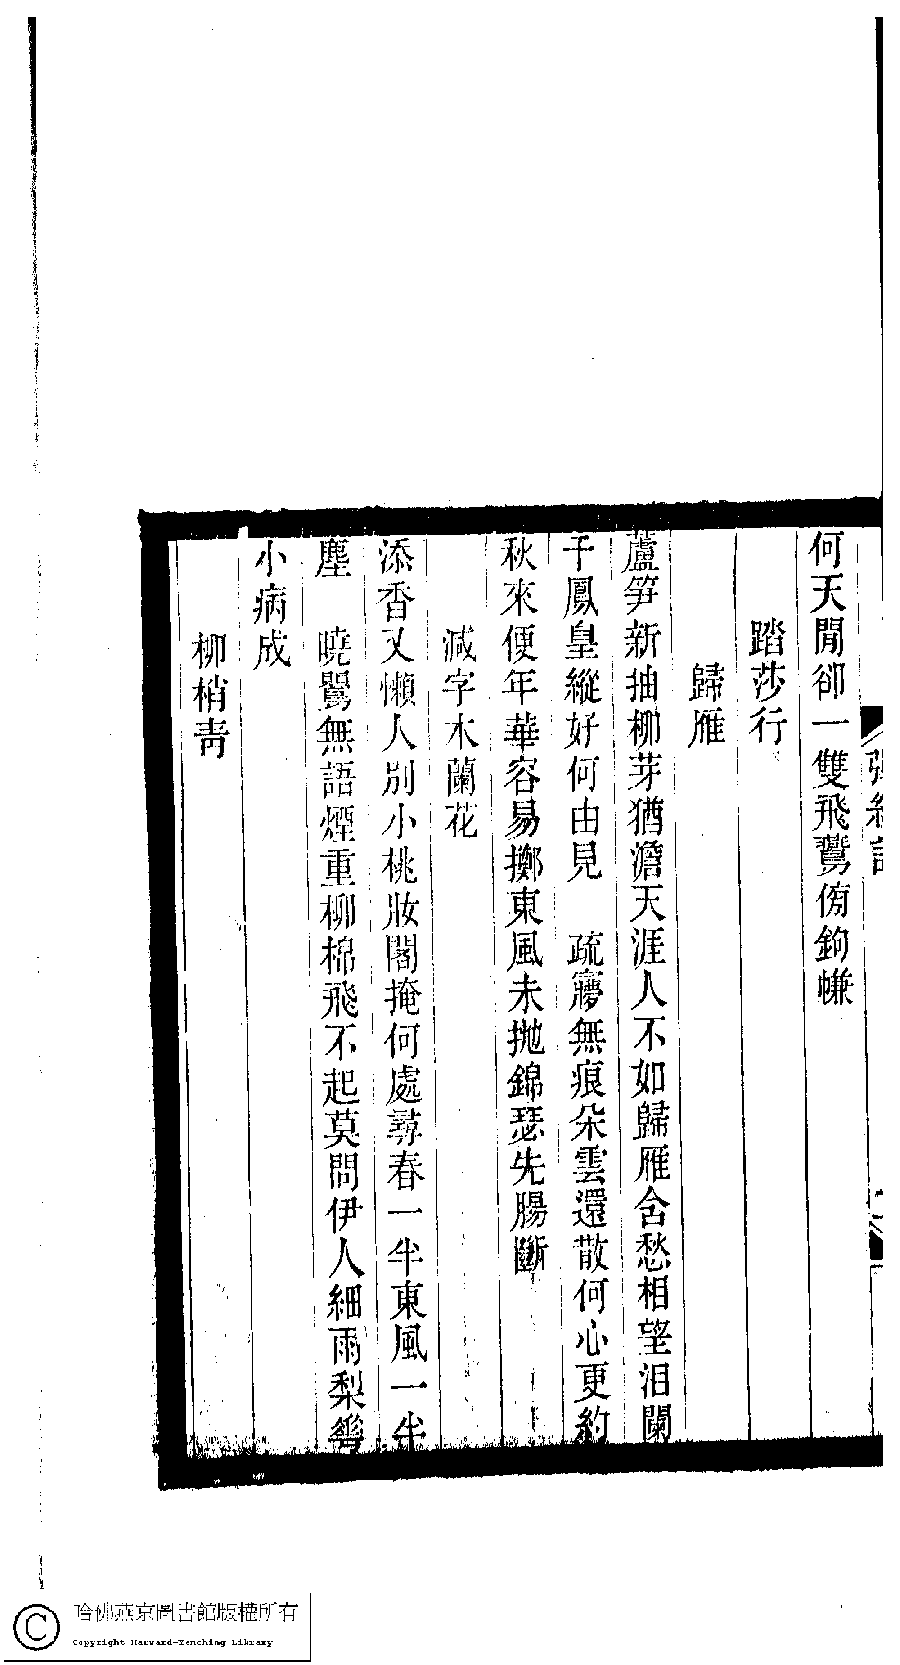 何天閒卻一雙飛鷰傍鉤㡘
踏莎行
歸雁
蘆笋新抽柳芽猶澹天涯人不如歸雁含愁相望泪闌
干鳳皇縱好何由見　疏㝱無痕朵雲還散何心更約
秋來便年華容易擲東風未拋錦瑟先腸斷
減字木蘭花
添香又懶人別小桃妝閣掩何處尋春一半東風一半
塵　曉鶯無語煙重柳棉飛不起莫問伊人細雨梨花
小病成
柳梢青
哈佛燕京圖書館版權所有
Copyright Harvard-Yenching Library